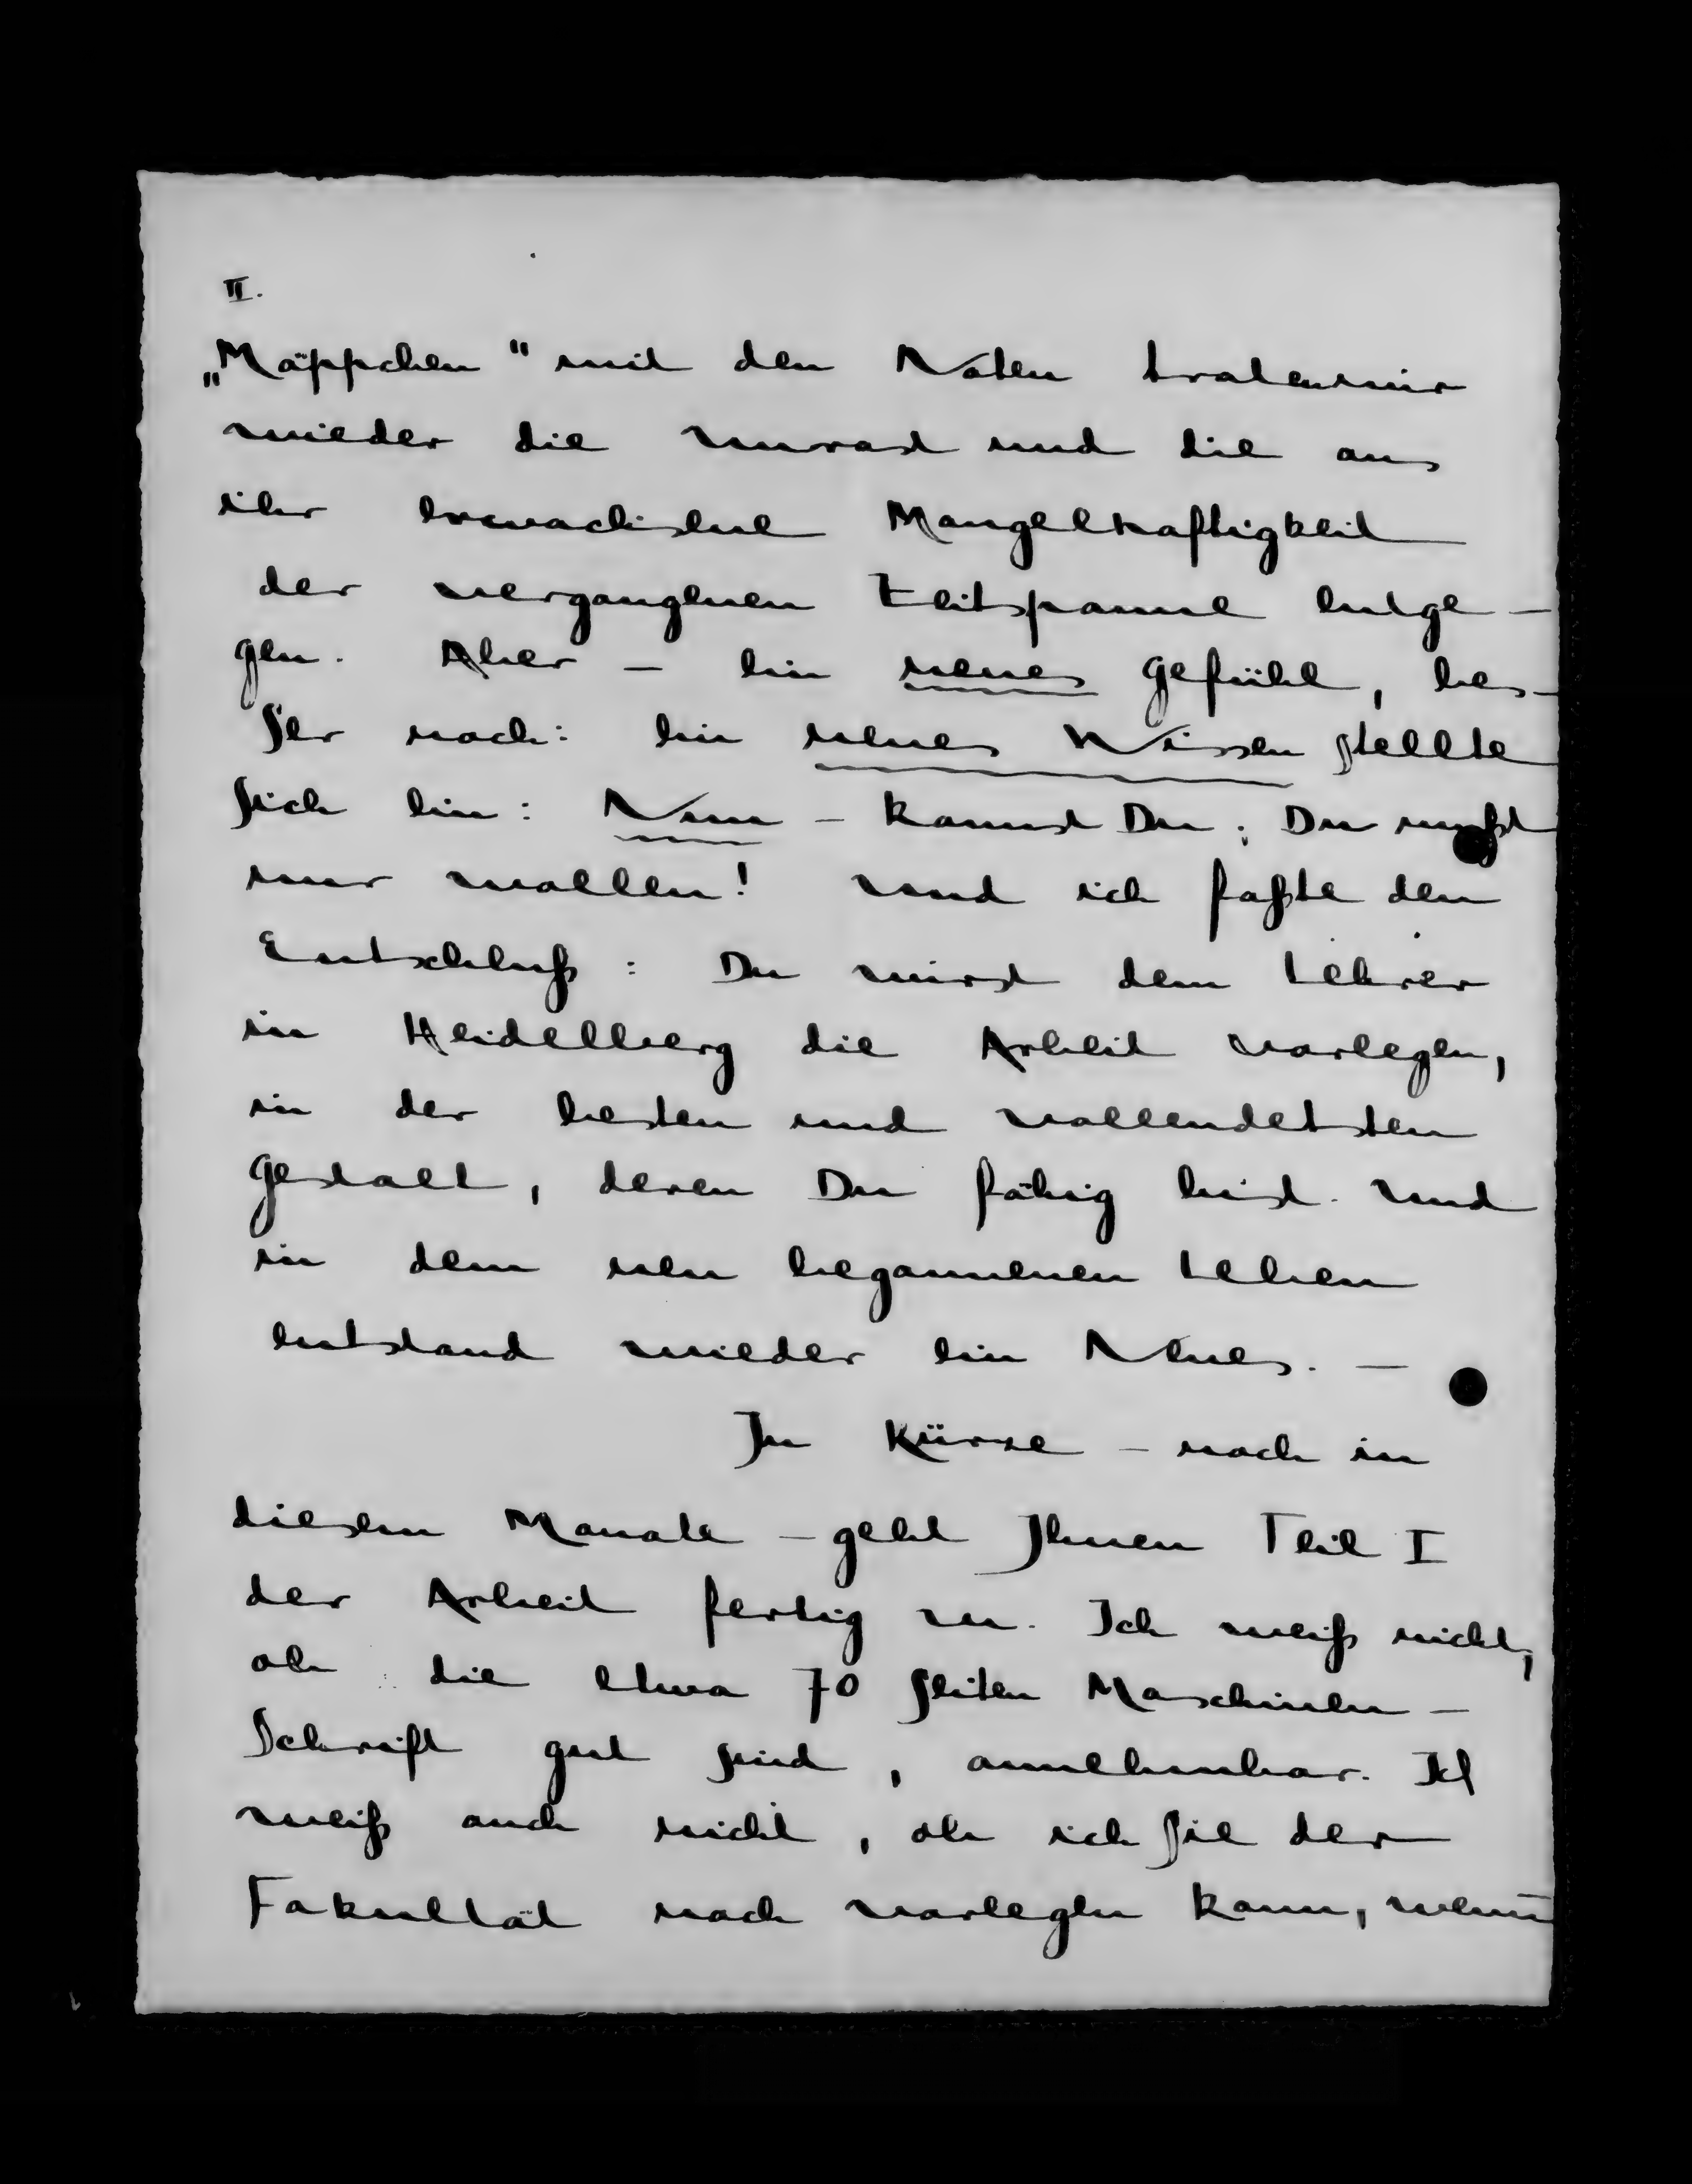 II.
„Mäppchen" mit den Noten traten mir
wieder die Unrast und die aus
ihr erwachsene Mangelhaftigkeit
der vergangenen Zeitspanne entge-
gen. Aber – ein neues Gefühl, bes-
ser noch: ein neues Wissen stellte
sich ein: Nun – kannst Du; Du mußt
nur wollen! Und ich faßte den
Entschluß: Du wirst dem Lehrer
in Heidelberg die Arbeit vorlegen,
in der besten und vollendetsten
Gestalt, deren Du fähig bist. Und
in dem neu begonnenen Leben
entstand wieder ein Neues. –
In Kürze – noch in
diesem Monate – geht Ihnen Teil I
der Arbeit fertig zu. Ich weiß nicht,
ob die etwa 70 Seiten Maschinen-
Schrift gut sind, annehmbar. Ich
weiß auch nicht, ob ich sie der
Fakultät noch vorlegen kann, wenn